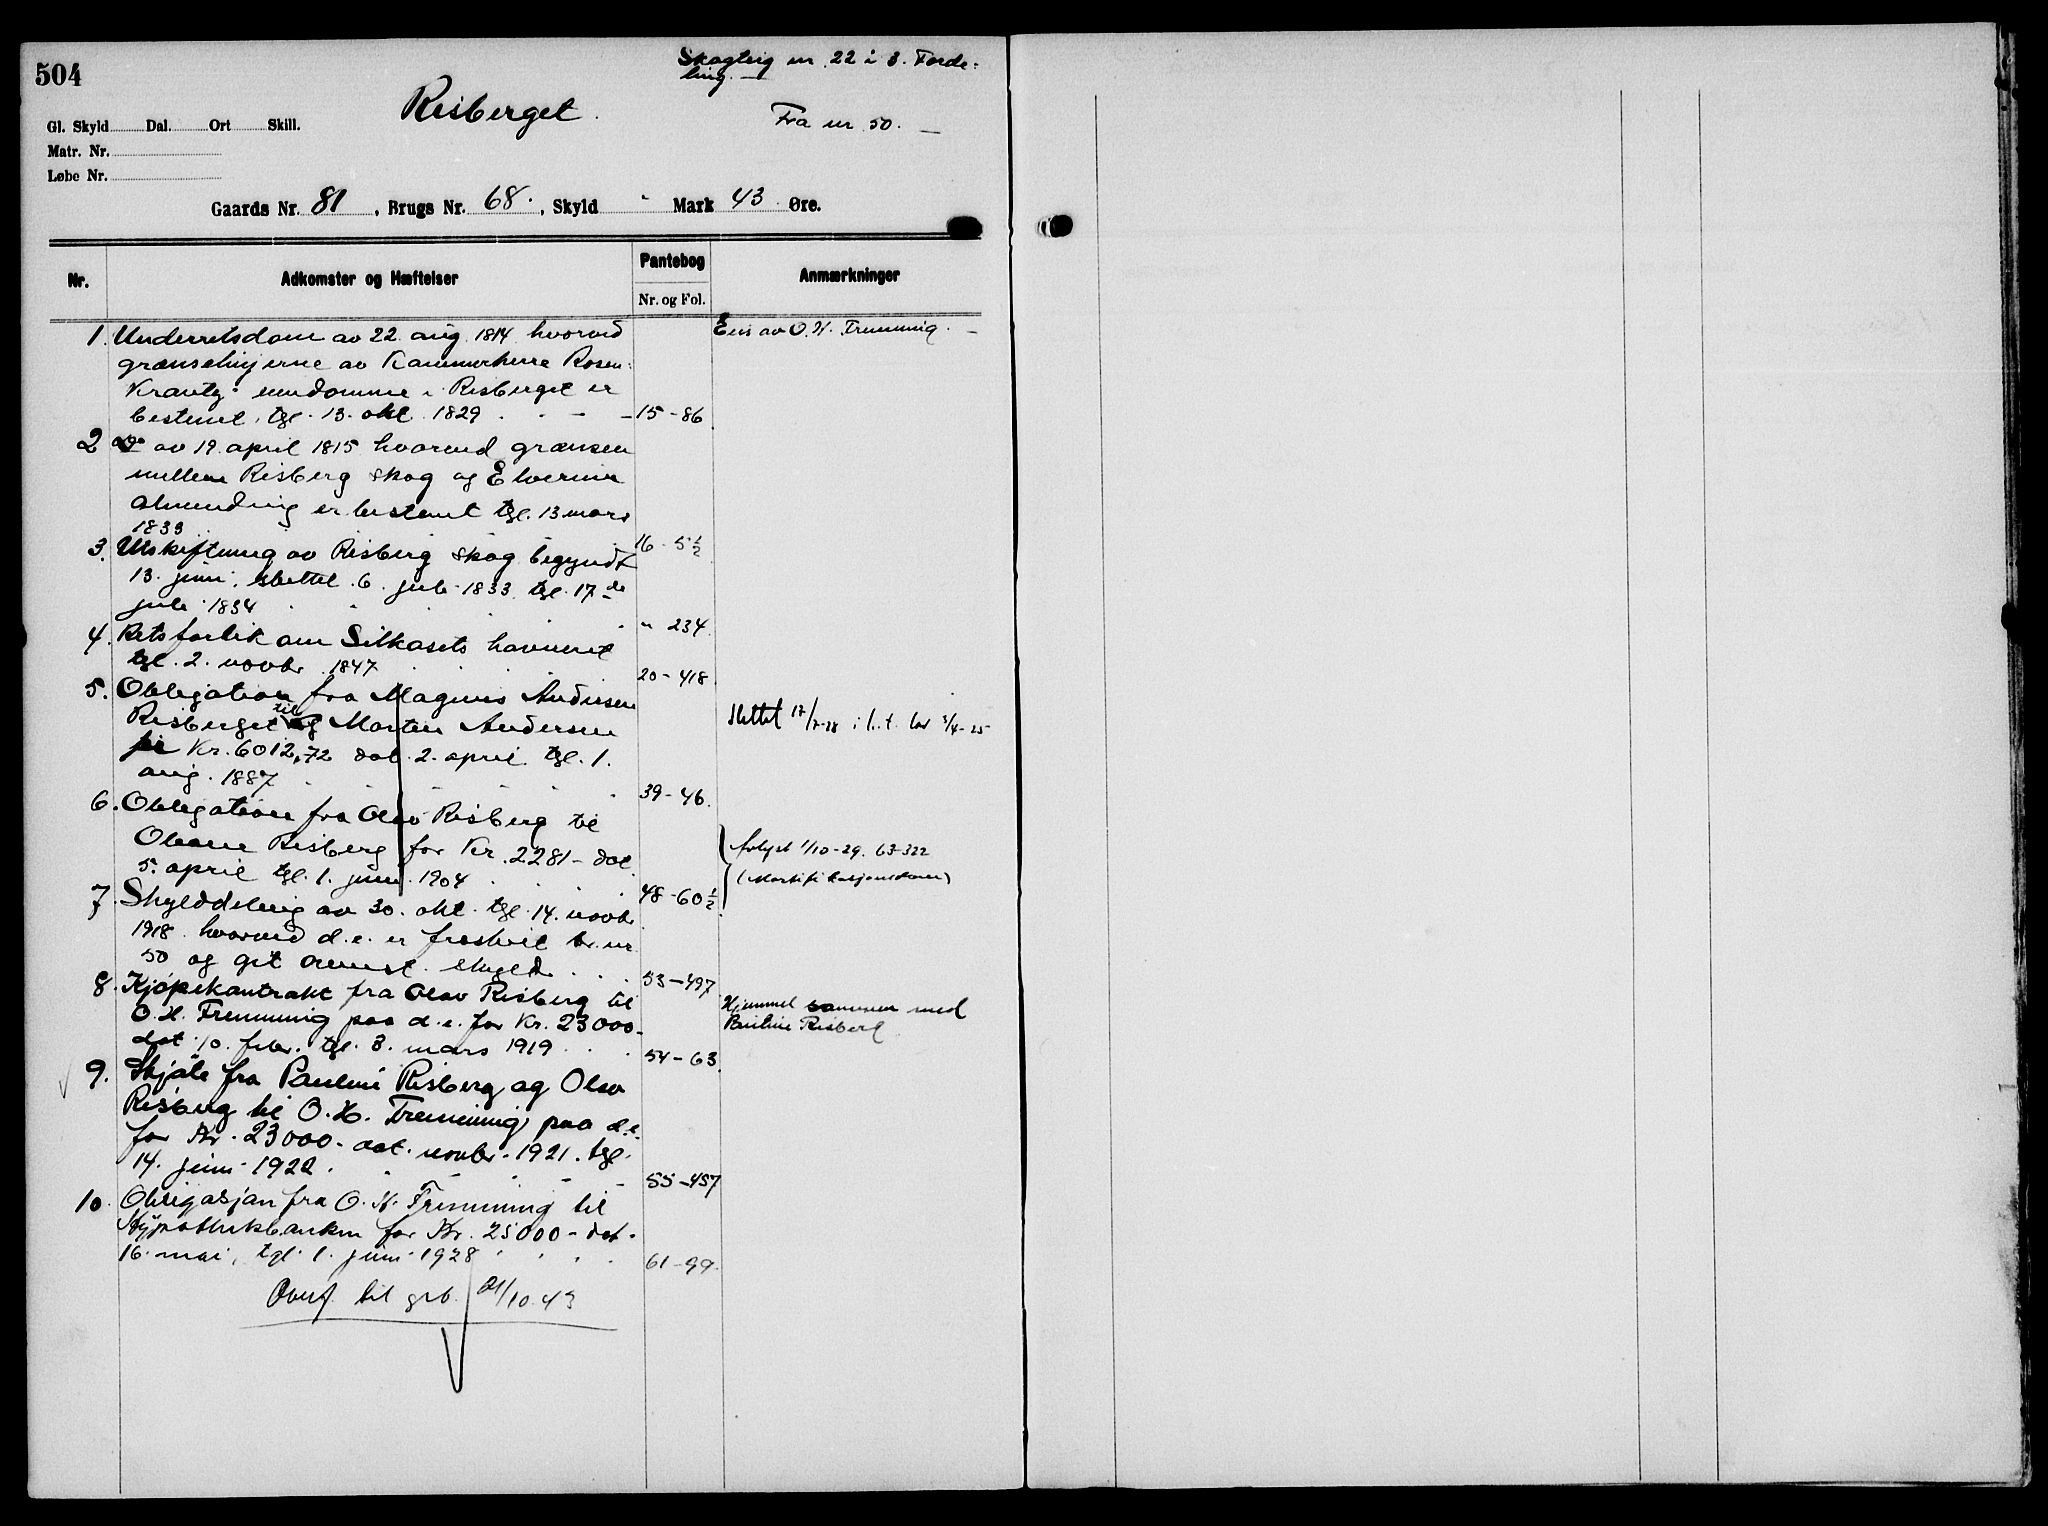 504
Skogteig nr. 22 i 3. Forde-
ling. —
Risberget.
Fra nr 50. —
Gl. Skyld Dal. Ort Skill.
Matr. Nr.
Løbe Nr.
Gaards Nr. 81, Brugs Nr. 68., Skyld " Mark 43 Øre.
Nr. Adkomster og Hæftelser Pantebog Anmærkninger
Nr. og Fol.
1. Underretsdom av 22. aug. 1814 hvorved Eies av O. H. Tremmig. —
grænselinjerne av Kammerherre Rosen-
Krantz' eiendomme i Risberget er
bestemt, tgl. 13. okt. 1829 15 - 86
2 do av 19. april 1815 hvorved grænsen
mellem Risberg skog og Elverum
almending er bestemt tgl. 13 mars
1833 16 - 5 1/2
3. Utskiftning av Risberg skog begyndt
13. juni, sluttet 6. juli 1833 tgl. 17de
juli 1834 " 234
4. Retsforlik om Silkasets havneret
tgl. 2. novbr. 1847 20 - 418
5. Obligation fra Magnus Andersen
Risberget til Morten Andersen
Kr. 6012,72 dat. 2. april tgl. 1. Slettet 17/7-28 i h. t. lov 3/4-25
aug. 1887 39 - 46.
6. Obligation fra Olav Risberg til
Oleane Risberg for Kr. 2281 - dat.
5. april tgl. 1. juni 1904 48 - 60 1/2
Avlyst 1/10-29. 63-322
(Mortifikasjonsdom)
7. Skylddeling av 30. okt. tgl. 14. novbr.
1918 hvorved d.e. er fraskilt br. nr.
50 og git anmst. skyld 53 - 497
8. Kjøpekontrakt fra Olav Risberg til Hjemmel sammen med
O. H. Tremmig paa d.e. for Kr. 23000 - Pauline Risberg
dat 10. febr. tgl. 3. mars 1919 54 - 63
9. Skjøte fra Pauline Risberg og Olav
Risberg til O. H. Tremmig paa d.e.
for Kr. 23000 - dat. novbr. 1921. tgl.
14. juni 1922. 55 - 457
10. Obligasjon fra O. H. Tremmig til
Hypothekbanken for Kr. 25000 - dat.
16. mai, tgl. 1. juni 1928 61 - 99.
Overf. til grb. 21/10.43